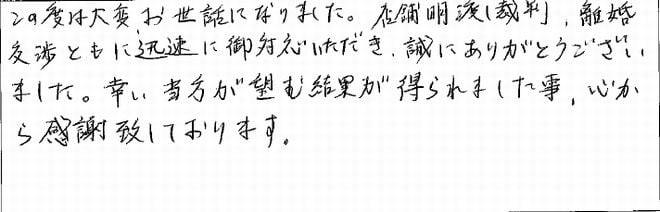 この度は大変お世話になりました。店舗明渡し裁判、離婚
交渉ともに迅速に御対応いただき、誠にありがとうござい
ました。幸い当方が望む結果が得られました事、心か
ら感謝致しております。